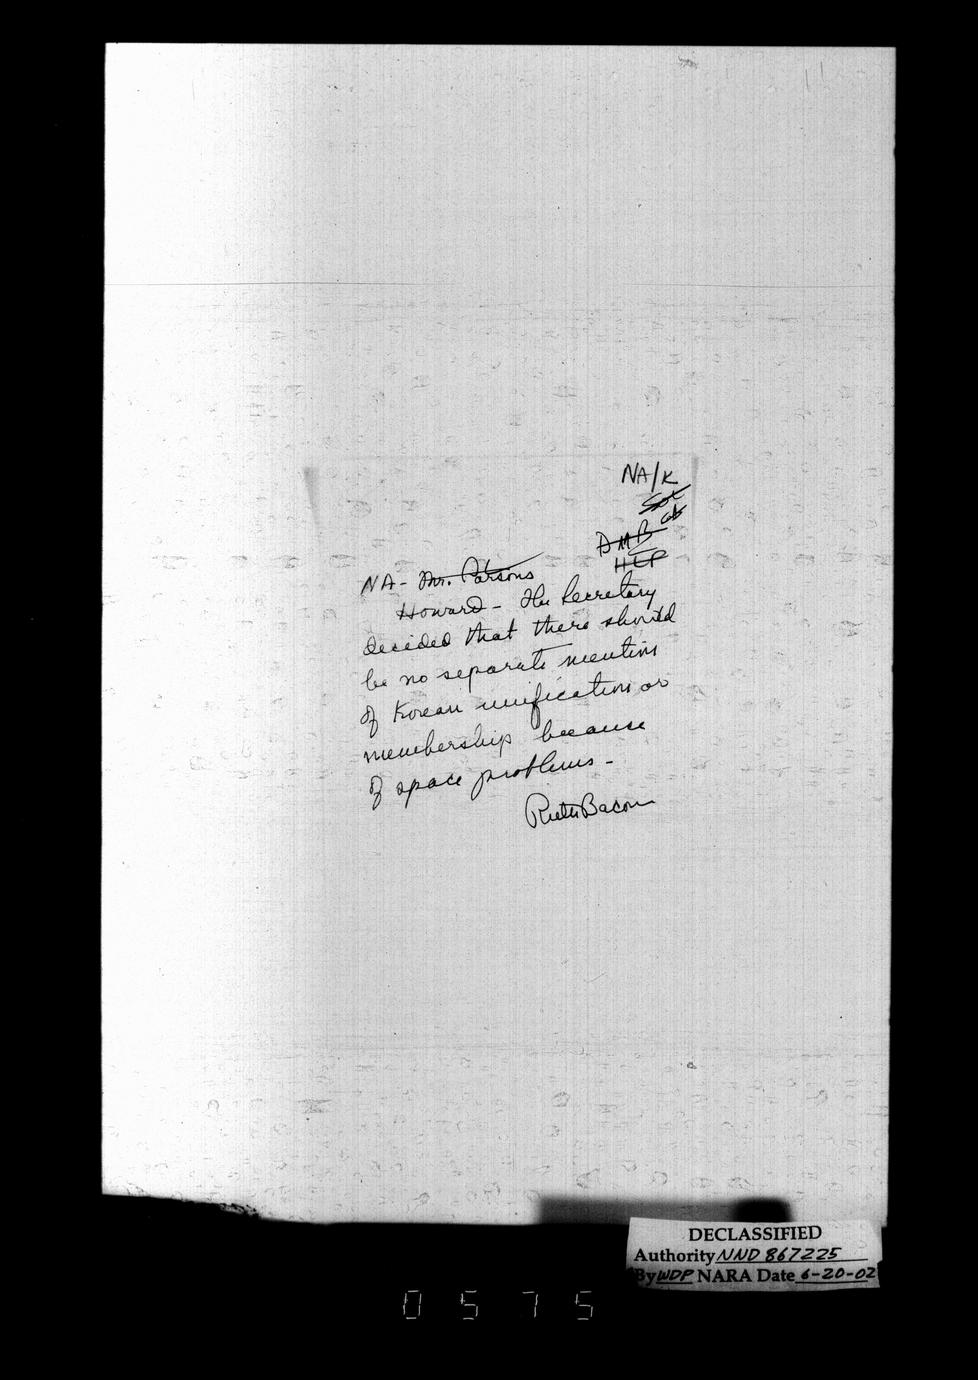 NA/K
DMB
HLP
NA - Mr. Parsons
Howard - The Secretary
decided that there should
be no separate mention
of Korean unification or
membership because
of space problems -
Ruth Bacon
DECLASSIFIED
Authority NND 867225
By WDP NARA Date 6-20-02
0575